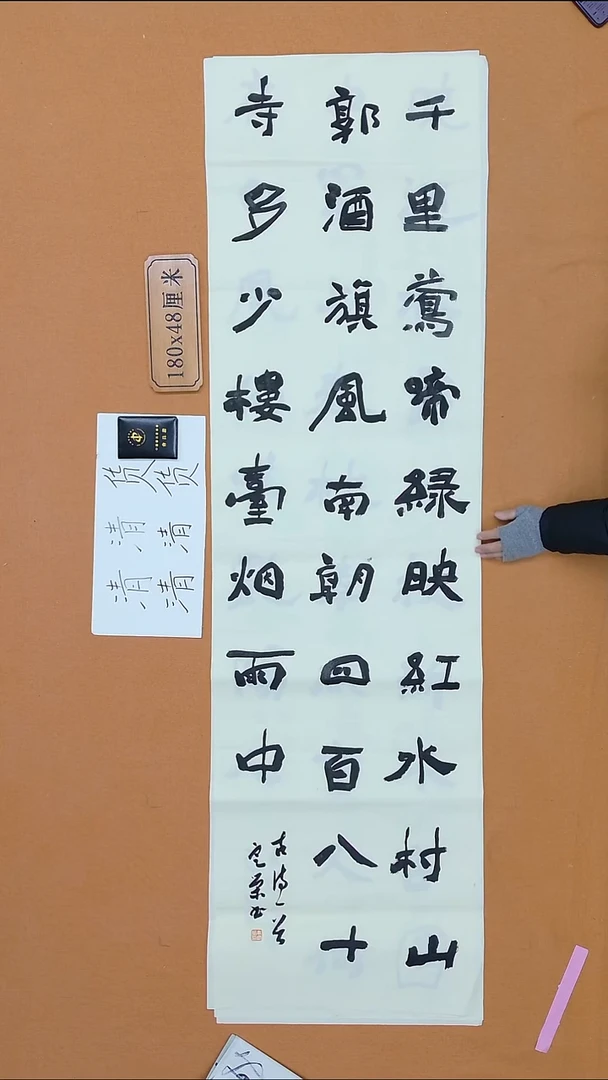 千里鶯啼緑映紅水村山
郭酒旗風南朝四百八十
寺多少樓臺烟雨中
古诗一首
180x48厘米
货货
清清
清清